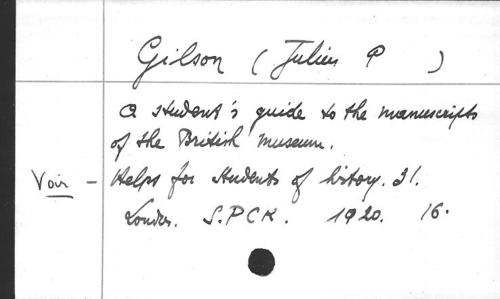 Gilson (Julius P )
A student's guide to the manuscripts
of the British Museum.
Voir - Helps for students of history. 31.
London. S.P.C.K. 1920. 16.